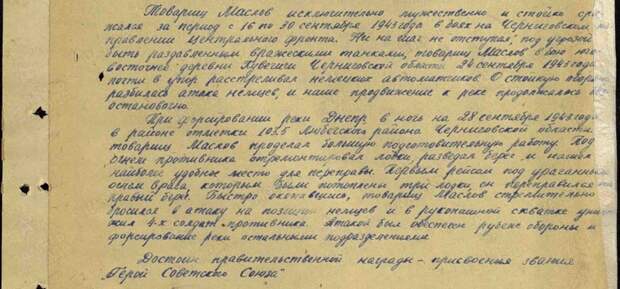 Товарищ Маслов исключительно мужественно и стойко сра-
жался за период с 16 по 30 сентября 1943 года в боях на Черниговском на
правлении Центрального фронта. Ни на шаг не отступая, под угрозой
быть раздавленным вражескими танками, товарищ Маслов в бою
восточнее деревни Кувечичи Черниговской области 24 сентября 1943 года
почти в упор расстреливал немецких автоматчиков. О стойкую оборону
разбилась атака немцев, и наше продвижение к реке продолжалось
остановочно.
При форсировании реки Днепр в ночь на 28 сентября 1943 года
в районе отметки 102.5 Любечского района Черниговской области
товарищ Маслов проделал большую подготовительную работу. Под
огнем противника отремонтировал лодки, разведал берег и нашел
наиболее удобные место для переправы. Первым рейсом под ураганным
огнем врага, которым были потоплены три лодки, он переправился на
правый берег. Быстро окопавшись, товарищ Маслов стремительно
бросился в атаку на позиции немцев и в рукопашной схватке унич
жил 4-х солдат противника. Атакой был обеспечен рубеж обороны и
форсирование реки остальными подразделениями.
Достоин правительственной награды - присвоения звания
"Герой Советского Союза"